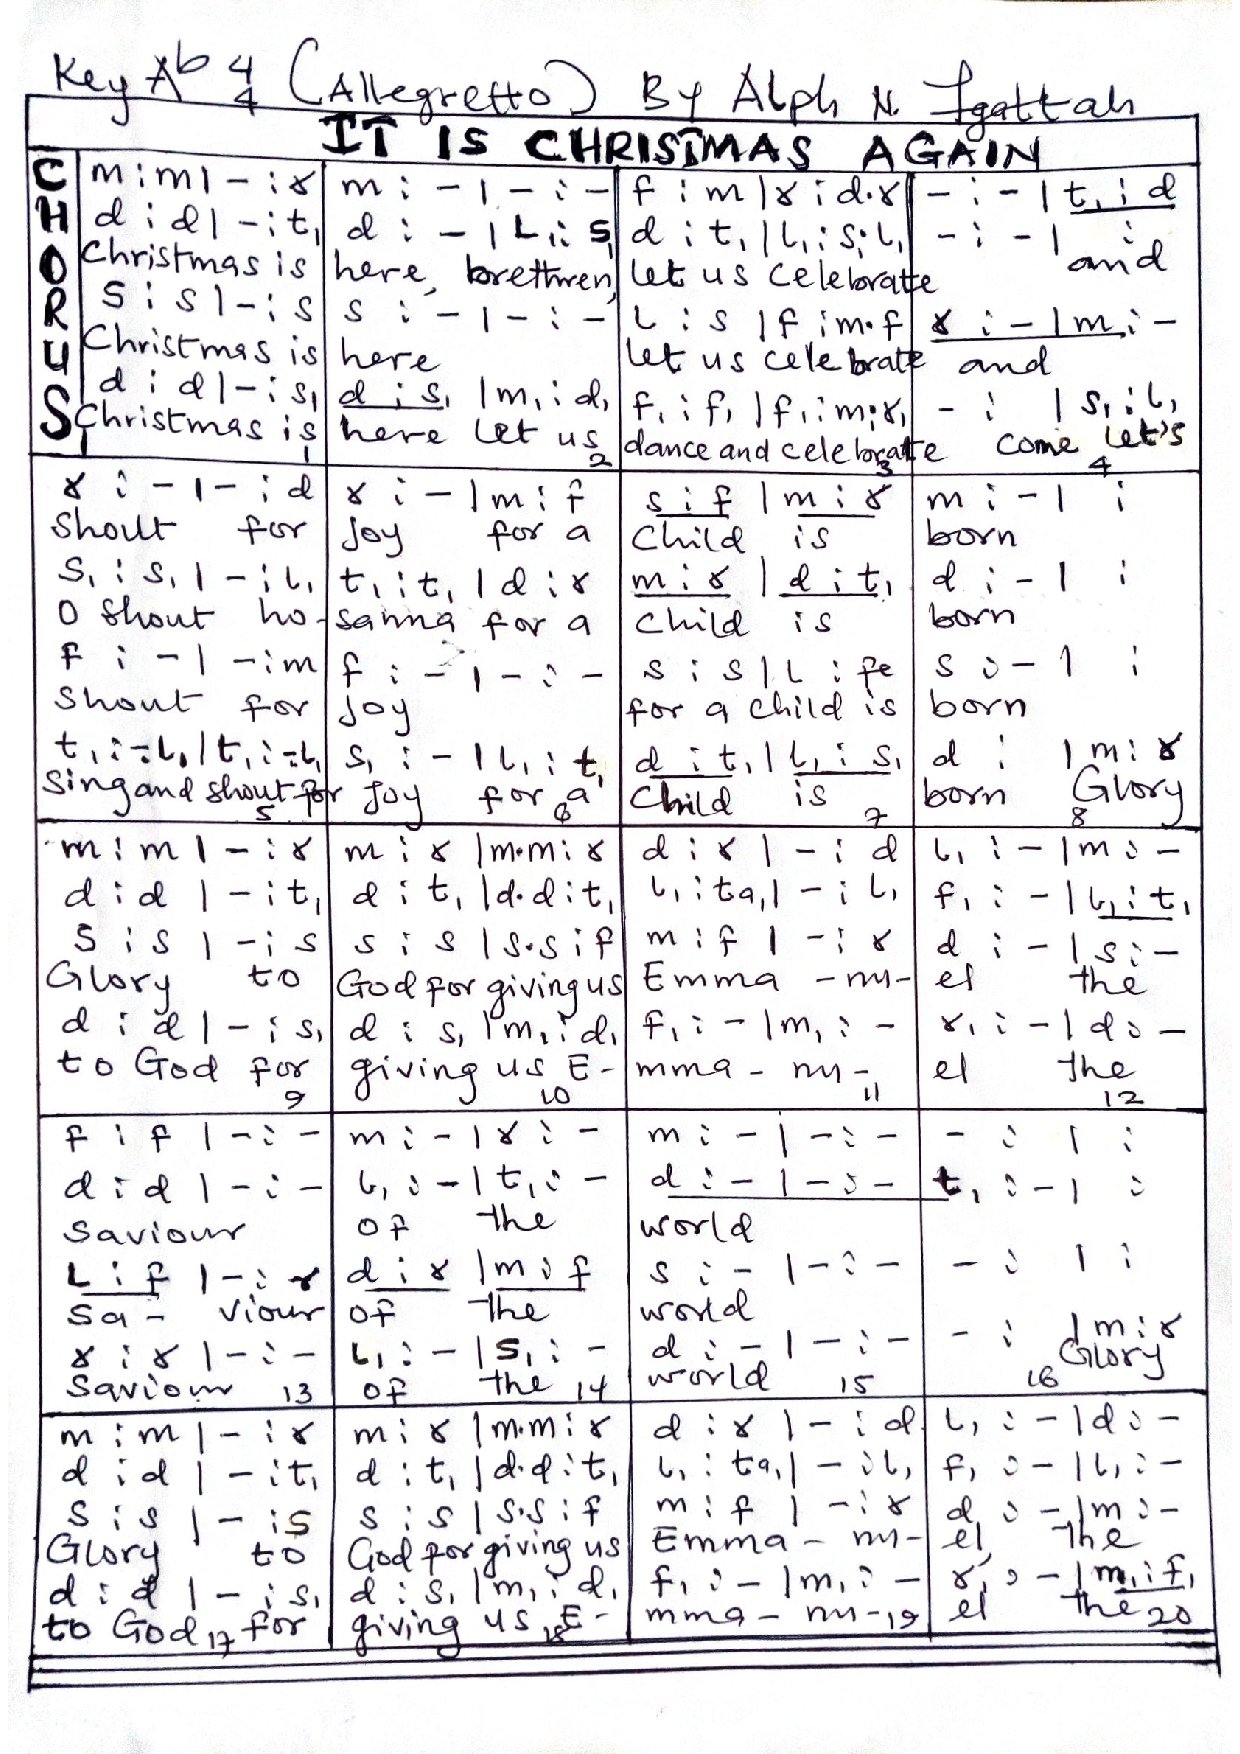 Key Ab 4/4 (Allegretto) By Alph N. Igattah
IT IS CHRISTMAS AGAIN
CHORUS
m : m | - : r   m : - | - : -   f : m | r : d.r   - : - | t, : d
d : d | - : t,   d : - | L, : s,   d : t, | l, : s,. l,   - : - | :
Christmas is   here, brethren,   let us celebrate   and
s : s | - : s   s : - | - : -   l : s | f : m.f   r : - | m : -
Christmas is   here   let us celebrate   and
d : d | - : s,   d : s, | m, : d,   f, : f, | f, : m,. r,   - : | s, : l,
Christmas is   here let us   dance and celebrate   come let's
1   2   3   4
r : - | - : d   r : - | m : f   s : f | m : r   m : - | :
Shout for   Joy for a   Child is   born
s, : s, | - : l,   t, : t, | d : r   m : r | d : t,   d : - | :
O shout ho-   sanna for a   Child is   born
f : - | - : m   f : - | - : -   s : s | l : fe   s : - | :
Shout for   Joy   for a child is   born
t, : -. l, | t, : -. l,   s, : - | l, : t,   d : t, | l, : s,   d : | m : r
Sing and shout for   Joy for a   Child is   born Glory
5   6   7   8
m : m | - : r   m : r | m.m : r   d : r | - : d   l, : - | m : -
d : d | - : t,   d : t, | d.d : t,   l, : ta, | - : l,   f, : - | l, : t,
s : s | - : s   s : s | s.s : f   m : f | - : r   d : - | s : -
Glory to   God for giving us   Emma - nu-   el the
d : d | - : s,   d : s, | m, : d,   f, : - | m, : -   r, : - | d : -
to God for   giving us E-   mma - nu-   el the
9   10   11   12
f : f | - : -   m : - | r : -   m : - | - : -   - : | :
d : d | - : -   l, : - | t, : -   d : - | - : -   t, : - | :
Saviour   of the   world
L : f | - : r   d : r | m : f   s : - | - : -   - : | :
Sa - viour   of the   world
r : r | - : -   l, : - | s, : -   d : - | - : -   - : | m : r
Saviour   of the   world   Glory
13   14   15   16
m : m | - : r   m : r | m.m : r   d : r | - : d   l, : - | d : -
d : d | - : t,   d : t, | d.d : t,   l, : ta, | - : l,   f, : - | l, : -
s : s | - : s   s : s | s.s : f   m : f | - : r   d : - | m : -
Glory to   God for giving us   Emma - nu-   el, the
d : d | - : s,   d : s, | m, : d,   f, : - | m, : -   r, : - | m, : f,
to God for   giving us E-   mma - nu-   el the
17   18   19   20